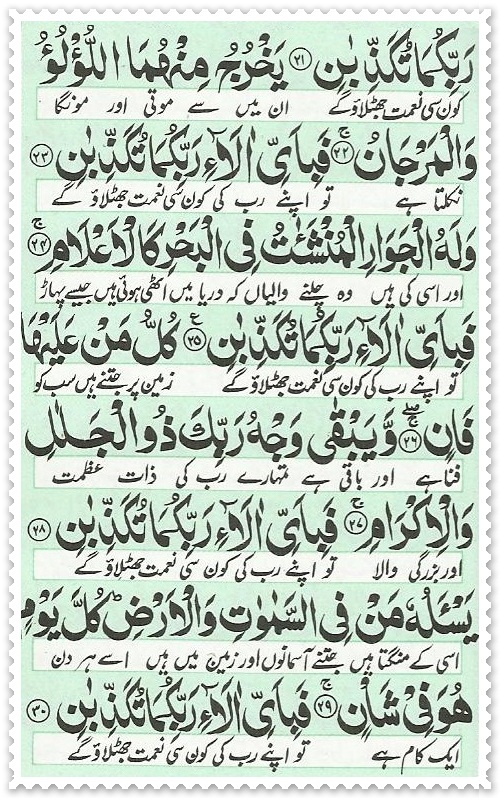 رَبِّكُمَا تُكَذِّبٰنِ ﴿۲۱﴾ يَخْرُجُ مِنْهُمَا اللُّؤْلُؤُ
کون سی نعمت جھٹلاؤ گے ان میں سے موتی اور مونگا
وَالْمَرْجَانُ ۚ﴿۲۲﴾ فَبِاَىِّ اٰلَآءِ رَبِّكُمَا تُكَذِّبٰنِ ﴿۲۳﴾
نکلتا ہے تو اپنے رب کی کون سی نعمت جھٹلاؤ گے
وَلَهُ الْجَوَارِ الْمُنْشَئٰتُ فِى الْبَحْرِ كَالْاَعْلَامِ ۚ﴿۲۴﴾
اور اسی کی ہیں وہ چلنے والیاں کہ دریا میں اٹھی ہوئی ہیں جیسے پہاڑ
فَبِاَىِّ اٰلَآءِ رَبِّكُمَا تُكَذِّبٰنِ ﴿۲۵﴾ۧ كُلُّ مَنْ عَلَيْهَا
تو اپنے رب کی کون سی نعمت جھٹلاؤ گے زمین پر جتنے ہیں سب کو
فَانٍ ۚۖ﴿۲۶﴾ وَّيَبْقٰى وَجْهُ رَبِّكَ ذُو الْجَلٰلِ
فنا ہے اور باقی ہے تمہارے رب کی ذات عظمت
وَالْاِكْرَامِ ۚ﴿۲۷﴾ فَبِاَىِّ اٰلَآءِ رَبِّكُمَا تُكَذِّبٰنِ ﴿۲۸﴾
اور بزرگی والا تو اپنے رب کی کون سی نعمت جھٹلاؤ گے
يَسْـَٔلُهٗ مَنْ فِى السَّمٰوٰتِ وَالْاَرْضِ ؕ كُلَّ يَوْمٍ
اسی کے منگتا ہیں جتنے آسمانوں اور زمین میں ہیں اسے ہر دن
هُوَ فِىْ شَاْنٍ ۚ﴿۲۹﴾ فَبِاَىِّ اٰلَآءِ رَبِّكُمَا تُكَذِّبٰنِ ﴿۳۰﴾
ایک کام ہے تو اپنے رب کی کون سی نعمت جھٹلاؤ گے